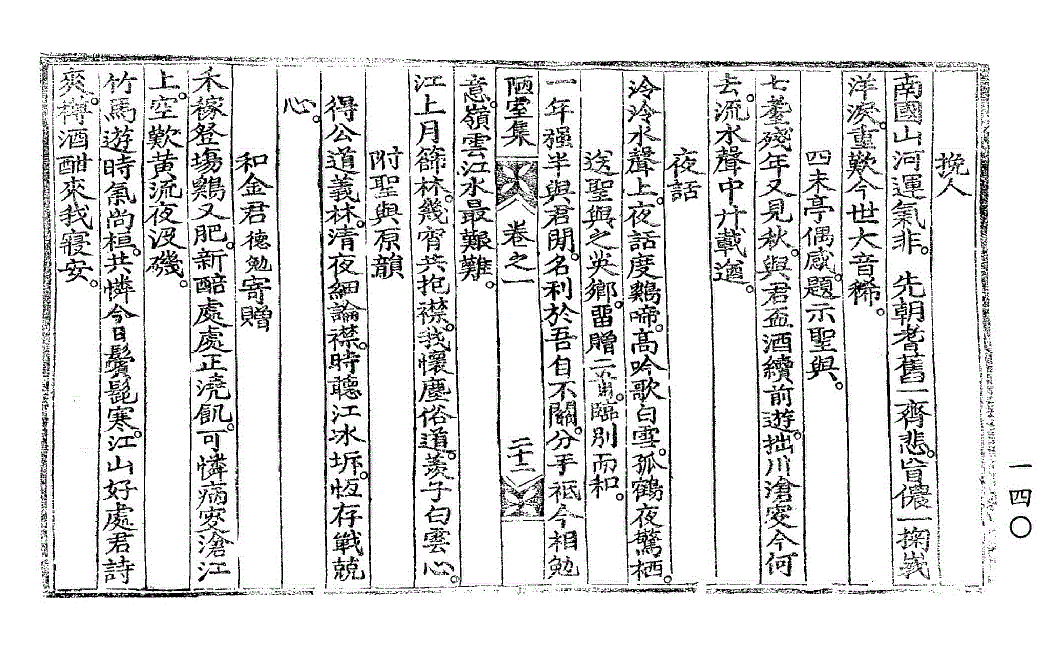 挽人
南國山河運氣非。先朝耆舊一齊悲。盲儂一掬峩
洋淚。重歎今世大音稀。
四未亭偶感。題示聖與。
七耋殘年又見秋。與君盃酒續前遊。拙川滄變今何
去。流水聲中廾載遒。
夜話
泠泠水聲上。夜話度鷄啼。高吟歌白雪。孤鶴夜驚栖。
送聖與之尖鄕。畱贈二首。臨別而和。
一年强半與君閒。名利於吾自不關。分手祗今相勉
陋室集 卷之一 二十二
意。嶺雲江水最艱難。
江上月篩林。幾宵共抱襟。我懷塵俗道。羨子白雲心。
附聖與原韻
得公道義林。淸夜細論襟。時聽江冰坼。恆存戰兢
心。
和金君德勉寄贈
禾稼登場鷄又肥。新醅處處正澆飢。可憐病叟滄江
上。空歎黃流夜沒磯。
竹馬遊時氣尙桓。共憐今日鬢髭寒。江山好處君詩
爽。樽酒酣來我寢安。
一四〇